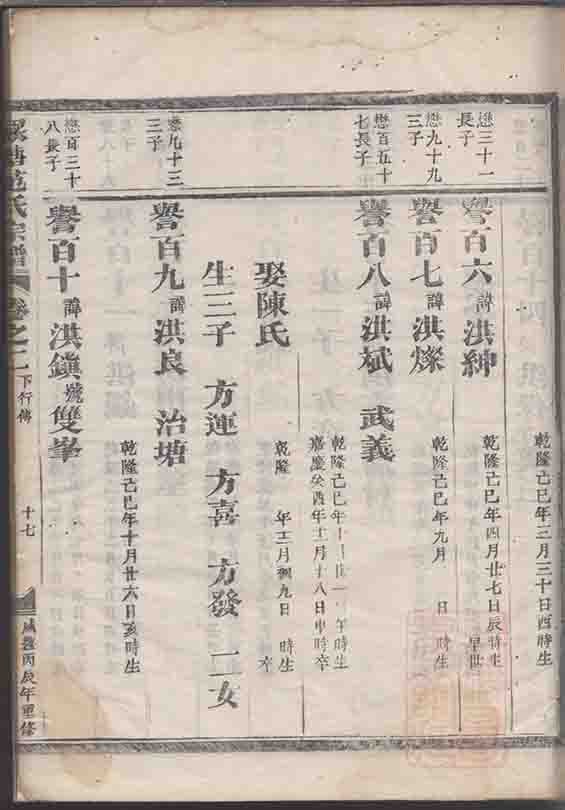 乾隆己巳年三月三十日酉時生
懋三十一
長子
譽百六 諱 洪紳 乾隆己巳年四月廿七日辰時生
早世
懋九十九
三子
譽百七 諱 洪燦 乾隆己巳年九月 日 時生
懋百五十
七長子
譽百八 諱 洪斌 武義 乾隆己巳年十 午時生
嘉慶癸酉年十一月十八日申時卒
娶陳氏 乾隆 年三月初九日 時生
卒
生三子 方運 方喜 方發 二女
懋九十三
三子
譽百九 諱 洪良 治塘 乾隆己巳年十月廿六日亥時生
懋百三十
八長子
譽百十 諱 洪鎮 號 雙峯
氏宗譜 卷之二 下行傳 十七 咸豐丙辰年重修